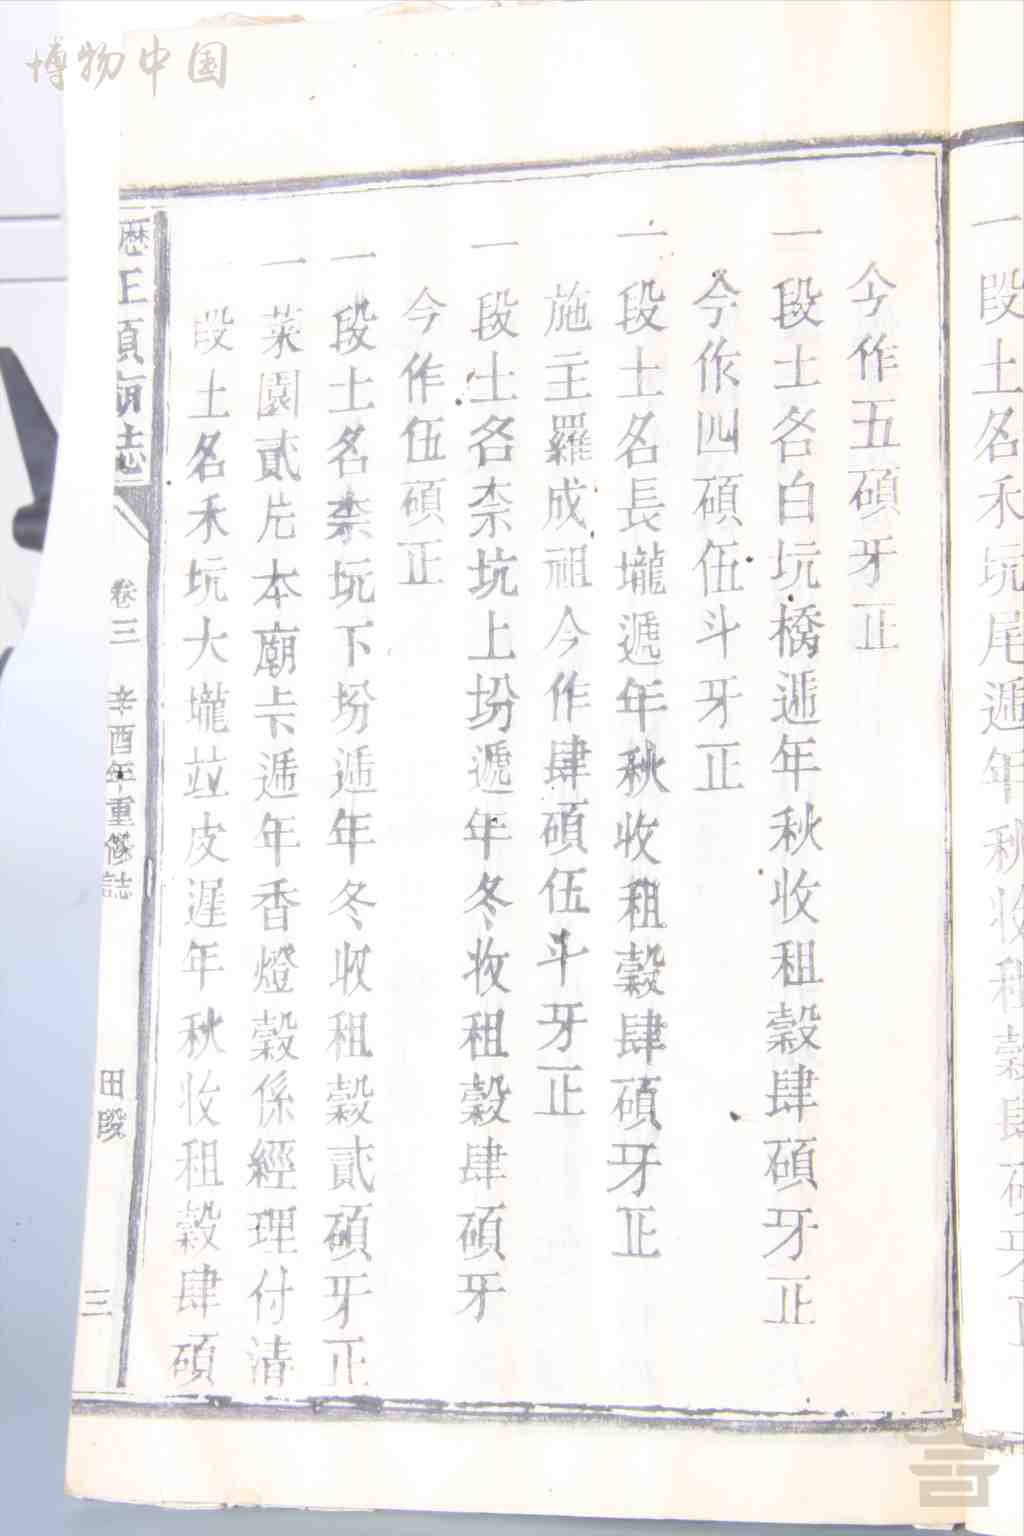 一段土名禾坑尾遞年秋收租穀肆碩牙正
今作五碩牙正
一段土名白坑橋遞年秋收租穀肆碩牙正
今作四碩伍斗牙正
一段土名長壠遞年秋收租穀肆碩牙正
施主羅成祖今作肆碩伍斗牙正
一段土名柰坑上坋遞年冬收租穀肆碩牙
今作伍碩正
一段土名柰坑下坋遞年冬收租穀貳碩牙正
一菜園貳片本廟上下遞年香燈穀係經理付清
一段土名禾坑大壠並皮遲年秋收租穀肆碩
歷王項廟誌
卷三
辛酉年重修誌
田段
三
博物中国